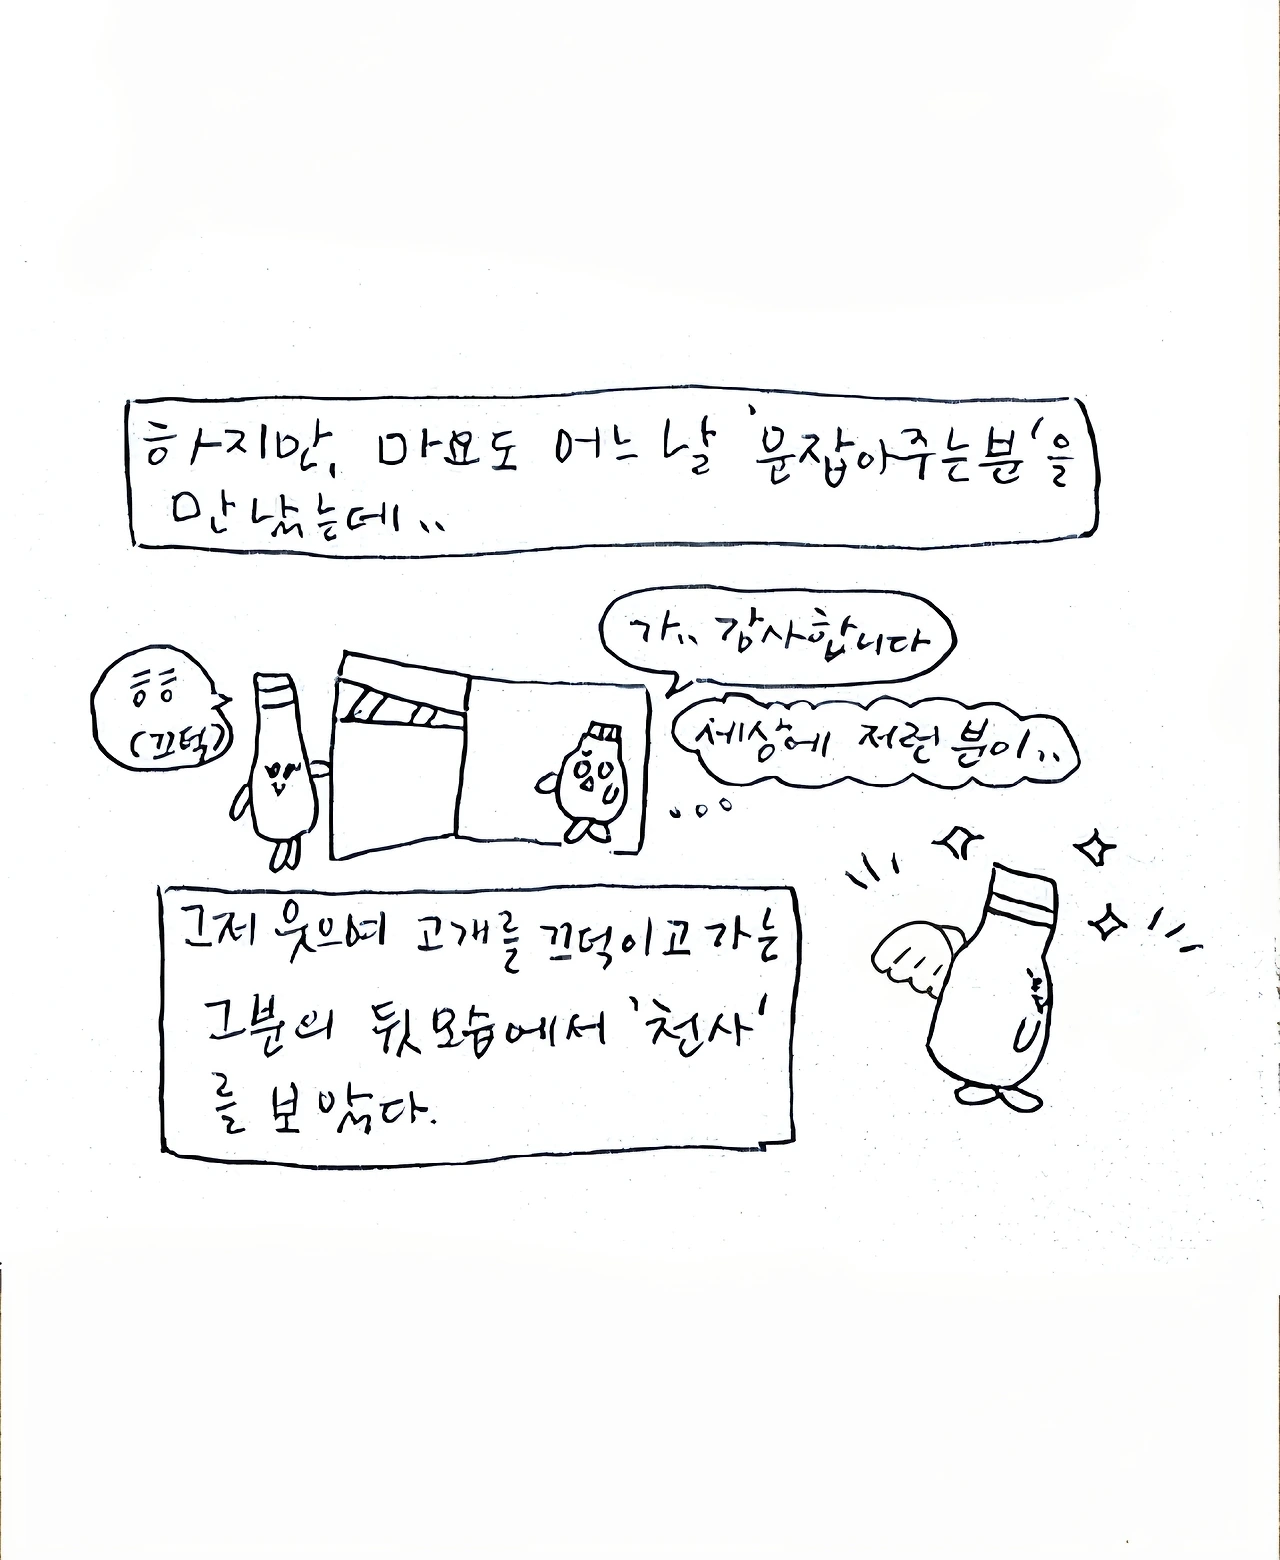 하지만, 마요도 어느 날 '문잡아주는분'을
만났는데..
가.. 감사합니다
(끄덕)
세상에 저런 분이..
그저 웃으며 고개를 끄덕이고 가는
그분의 뒷모습에서 '천사'
를 보았다.